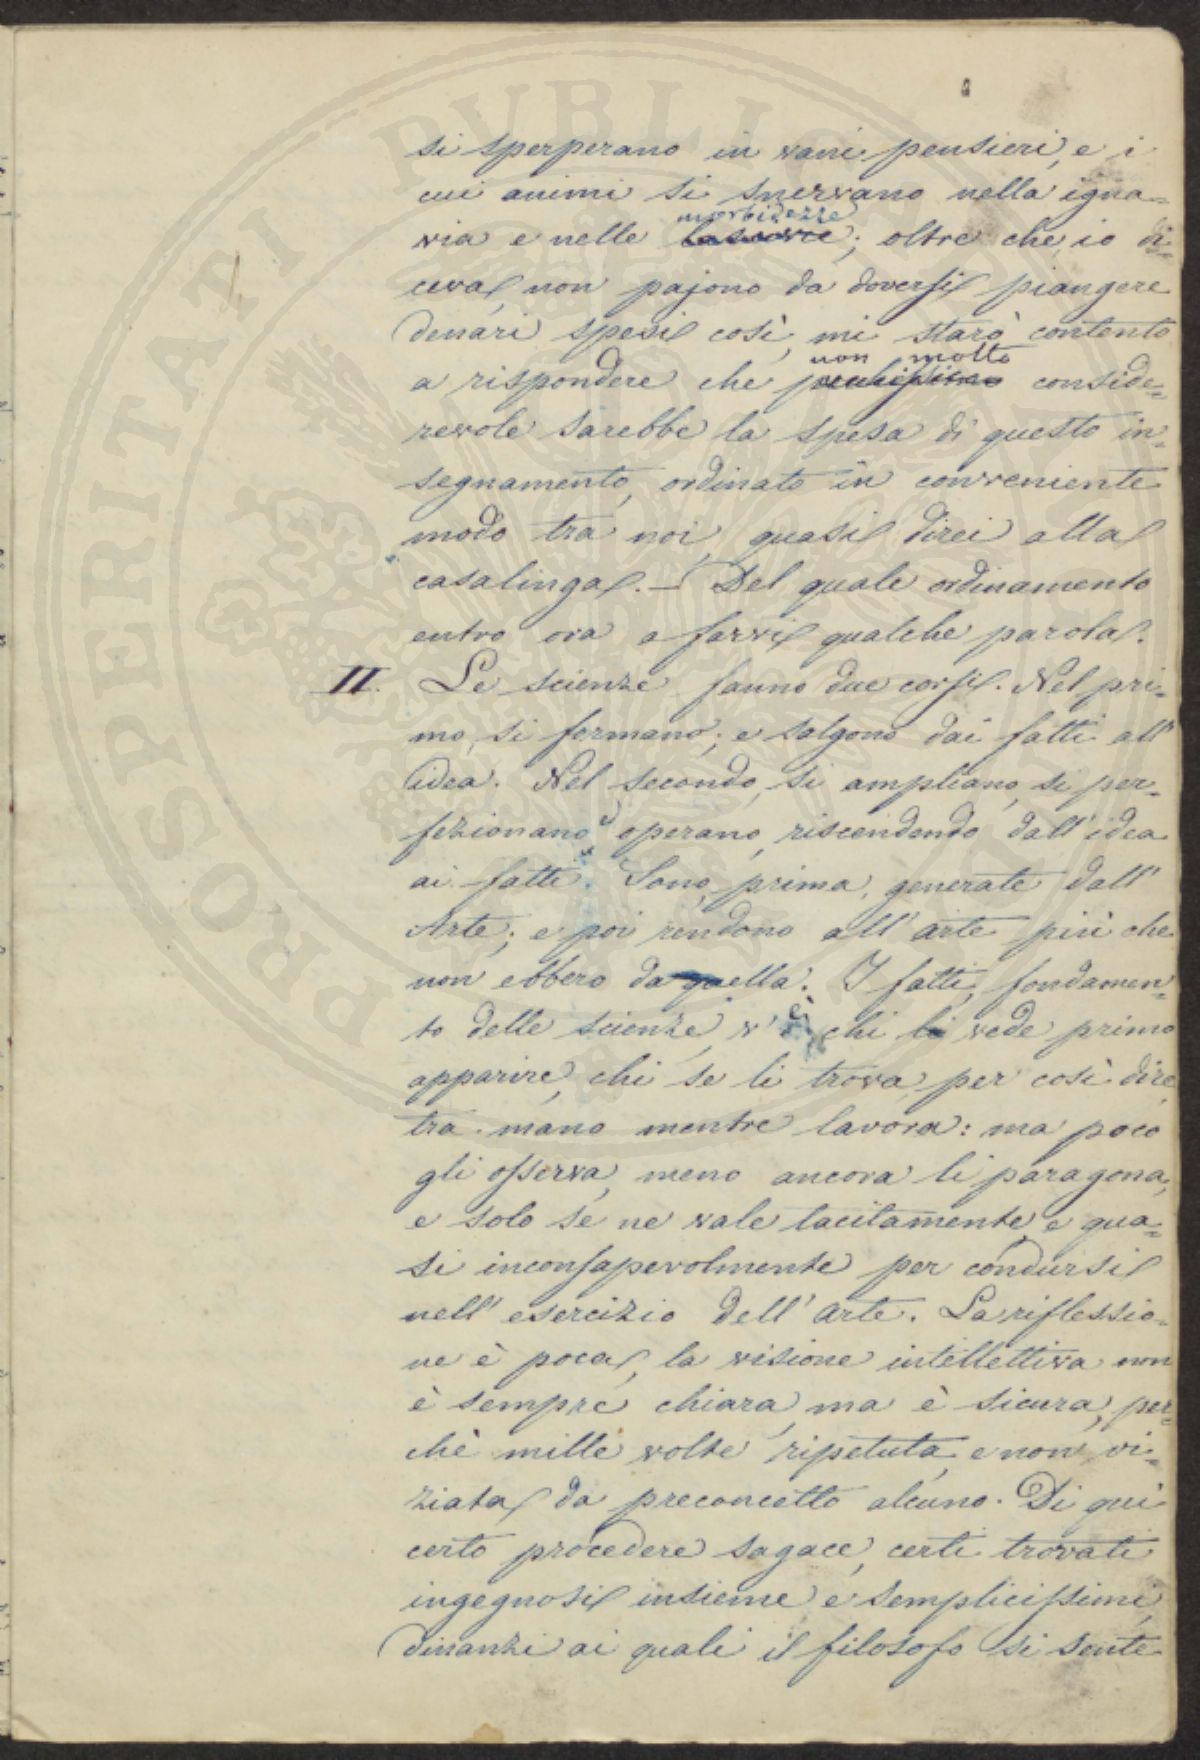 si sperperano in vani pensieri, e i
cui animi si snervano nella igna=
via e nelle morbidezze; oltre che, io di=
ceva, non pajono da doversi piangere
denari spesi così, mi starò contento
a rispondere che non molto conside=
revole sarebbe la spesa di questo in=
segnamento, ordinato in conveniente
modo tra noi, quasi direi alla
casalinga. — Del quale ordinamento
entro ora a farvi qualche parola.
II. Le scienze fanno due corsi. Nel pri=
mo, si fermano; e salgono dai fatti all'
idea. Nel secondo, si ampliano, si per=
fezionano e operano, riscendendo dall'idea
ai fatti. Sono, prima, generate dall'
Arte; e poi rendono all'arte più che
non ebbero da quella. I fatti, fondamen=
to delle scienze, v'è chi li vede primo
apparire, chi se li trova, per così dire,
tra mano mentre lavora: ma poco
gli osserva, meno ancora li paragona,
e solo se ne vale tacitamente, e qua=
si inconsapevolmente per condursi
nell'esercizio dell'arte. La riflessio=
ne è poca, la visione intellettiva non
è sempre chiara, ma è sicura, per=
chè mille volte ripetuta, e non vi=
ziata da preconcetto alcuno. Di qui
certo procedere sagace, certi trovati
ingegnosi insieme e semplicissimi,
dinanzi ai quali il filosofo si sente
PROSPERITATI PUBLICAE